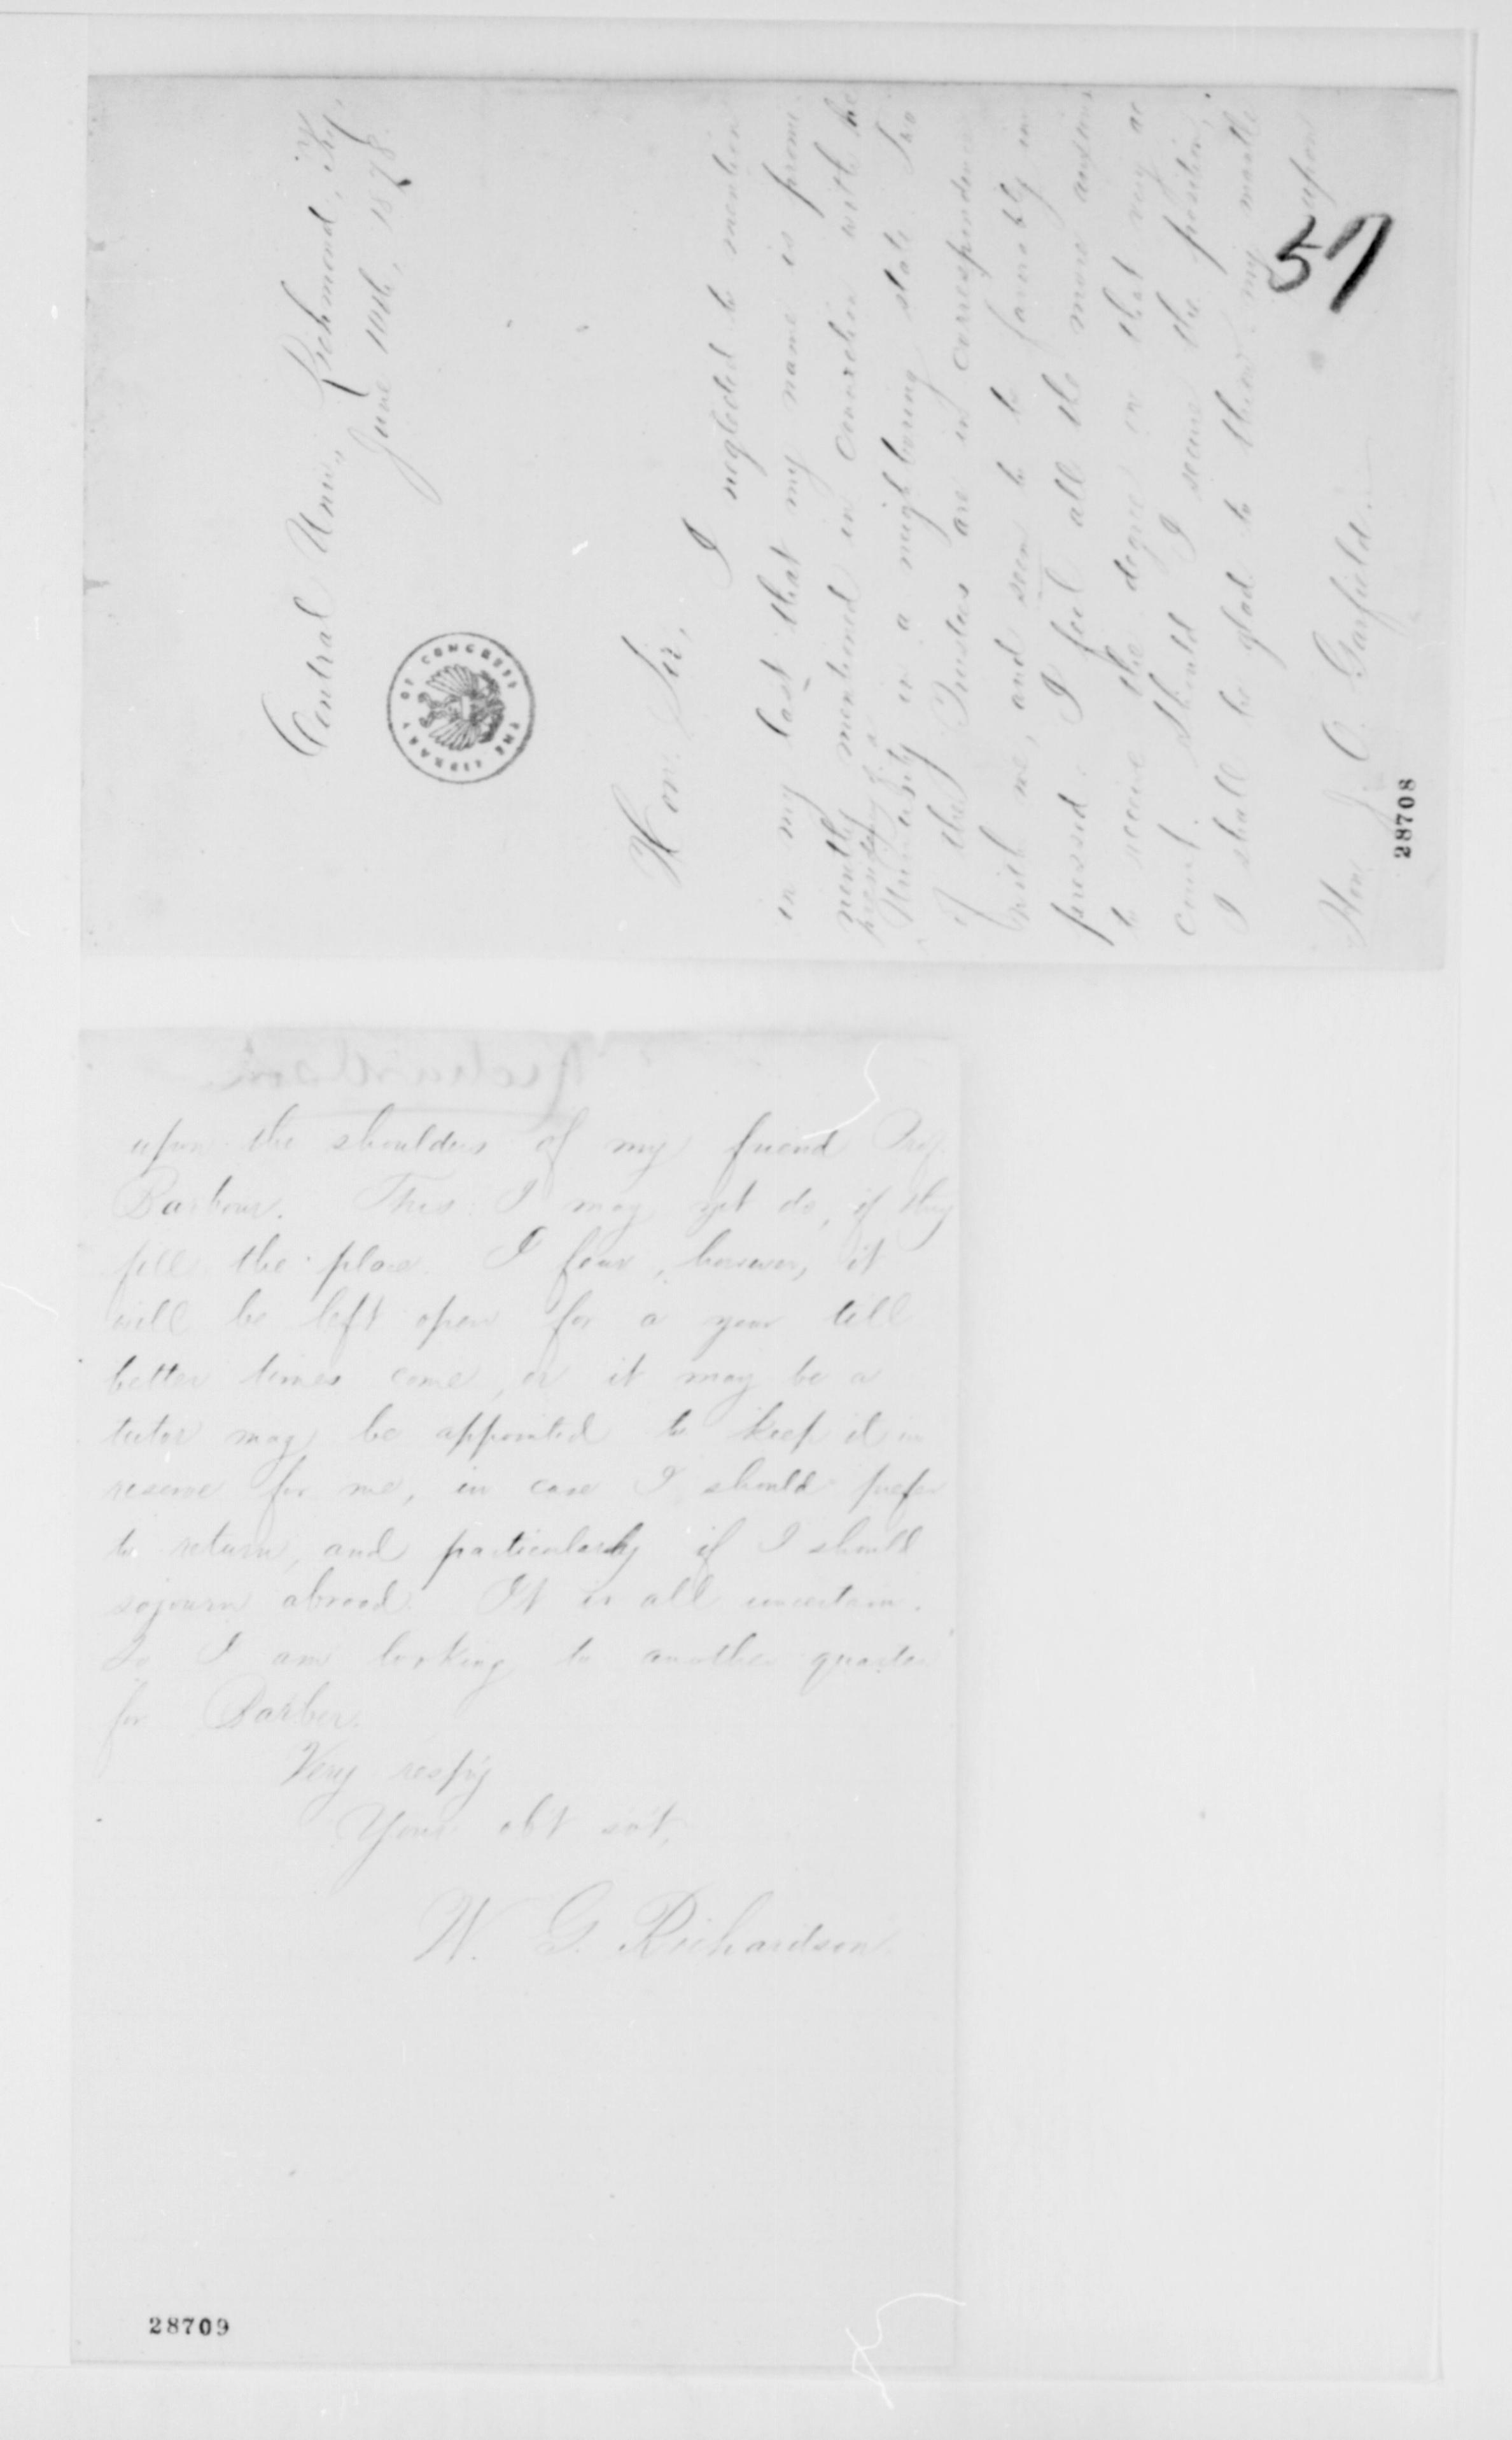 Central Univ., Richmond, Ky,
June 10th, 1878.
Hon. Sir,
I neglected to mention
in my last that my name is promi-
nently mentioned in connection with the
presidency of a
University in a neighboring state. Two
of the Trustees are in correspondence
with me, and seem to be favorably im
pressed. I feel all the more anxious
to receive the degree on that very ac
count. Should I secure the position,
I shall be glad to throw my mantle
upon
Hon. J. A. Garfield.
57
28708
THE LIBRARY OF CONGRESS
Richardson
upon the shoulders of my friend Prof.
Barbour. This I may yet do, if they
fill the place. I fear, however, it
will be left open for a year till
better times come, or it may be a
tutor may be appointed to keep it in
reserve for me, in case I should prefer
to return, and particularly if I should
sojourn abroad. It is all uncertain.
So I am looking to another quarter
for Barber.
Very resp'y
Your obt svt,
W. G. Richardson
28709